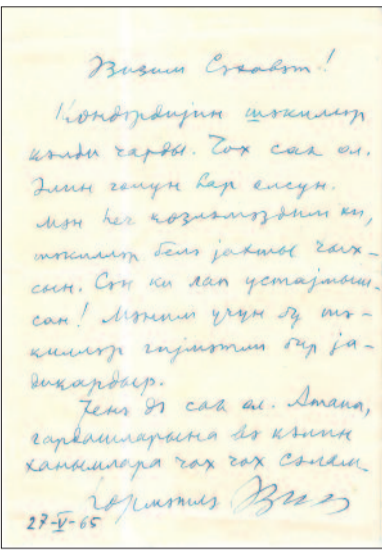 Әзизим Сәхавәт!
Көндәрдијин шәкилләр
кәлди чатды. Чох сағ ол.
Әлин голун вар олсун.
Мән һеч көзләмәздим ки,
шәкилләр белә јахшы чых-
сын. Сән ки лап устајмыш-
сан! Мәним үчүн бу шә-
килләр гијмәтли бир ја-
дикардыр.
Јенә дә сағ ол. Атана,
гардашларына вә кәлин
ханымлара чох чох салам.
Һөрмәтлә
27-V-65